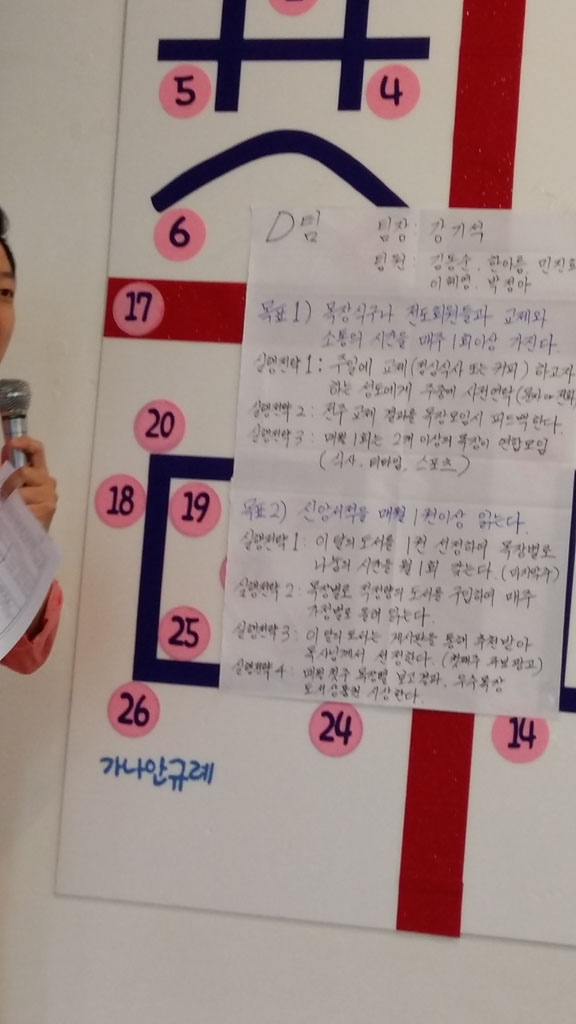 5
4
6
D팀 팀장: 강기석
팀원: 김동순, 한아름, 민진
이혜영, 박정아
17
목표 1) 목장식구나 전도회원들과 교제와
소통의 시간을 매주 1회이상 가진다.
실행전략 1: 주일에 교제(점심식사 또는 커피) 하고자
하는 성도에게 주중에 사전연락
실행전략 2: 전주 교제 결과를 목장모임시 피드백한다.
실행전략 3: 매월 1회는 2개 이상의 목장이 연합모임
(식사, 티타임, 스포츠)
20
18
19
목표2) 신앙서적을 매월 1권이상 읽는다.
실행전략 1: 이달의 도서를 1권 선정하여 목장별로
나눔의 시간을 월 1회 갖는다. (마지막주)
실행전략 2: 목장별로 적정량의 도서를 구입하여 매주
가정별로 돌려 읽는다.
실행전략 3: 이달의 도서는 게시판을 통해 추천받아
목사님께서 선정한다. (첫째주 주보광고)
실행전략 4: 매월 첫주 목장별 보고결과, 우수목장
도서상품권 시상한다.
25
26
24
14
가나안규례